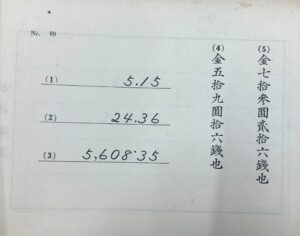 No. 69
(1) 5.15
(2) 24.36
(3) 5,608.35
(4) 金五拾九圓拾六錢也
(5) 金七拾參圓貳拾六錢也